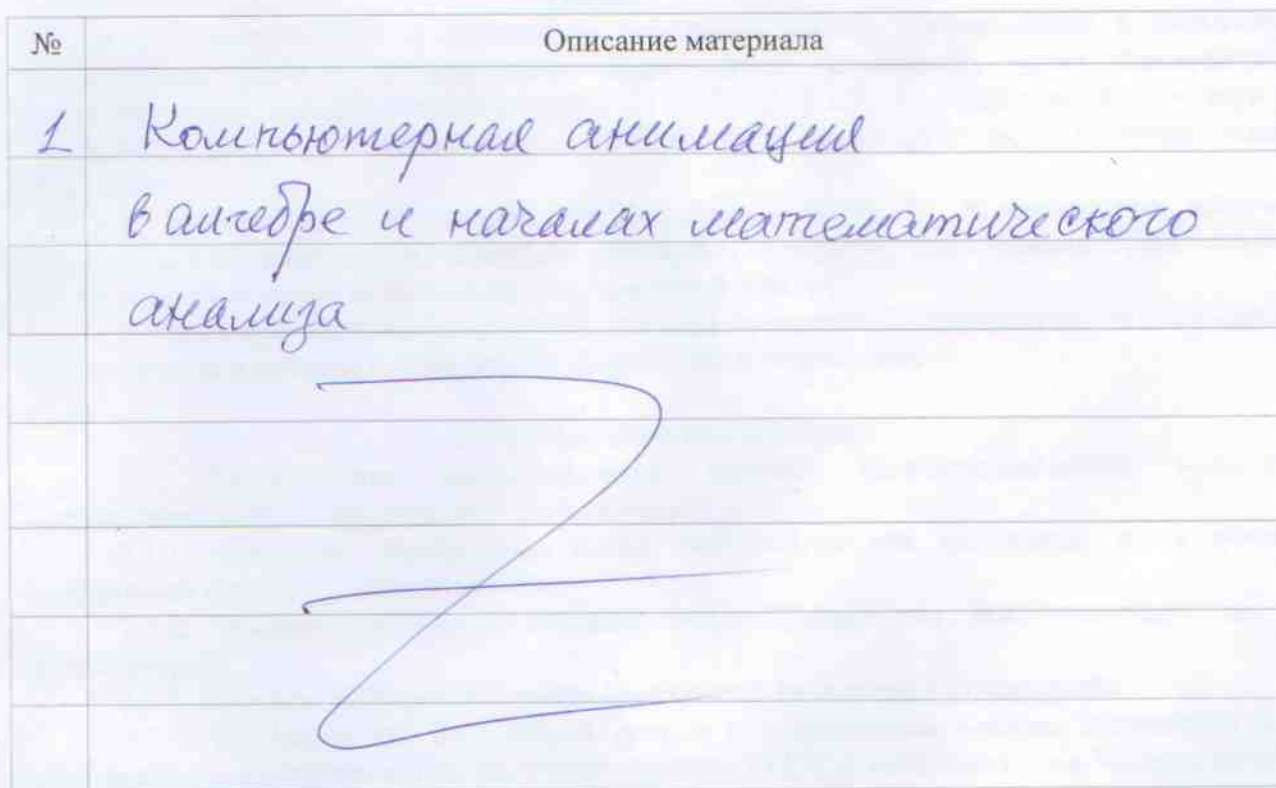 № Описание материала
1 Компьютерная анимация
в алгебре и началах математического
анализа